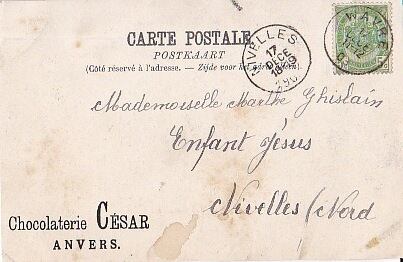 CARTE POSTALE
POSTKAART
(Côté réservé à l'adresse. — Zijde voor het adres
WAVRE
NIVELLES
17
DEC
Mademoiselle Marthe Ghislain
Enfant Jésus
Nivelles (Nord
Chocolaterie CÉSAR
ANVERS.